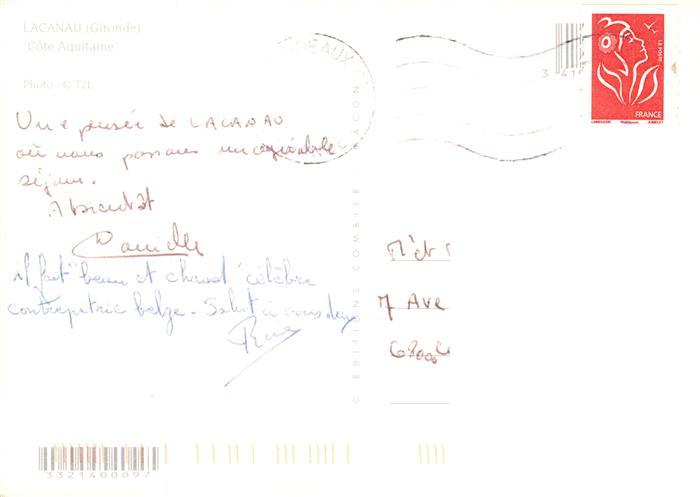 LACANAU (Gironde)
"Côte Aquitaine"
Photo : © T2L
Une pensée de LACANAU
où nous passons un agréable
séjour.
A bientôt
Danielle
il fait "beau et chaud" célèbre
contrepetrie belge - Salut à vous deux
© EDITIONS COMBIER MACON
BORDEAUX
LA POSTE
FRANCE
LAMOUCHE
7 Ave
68000
3321400097